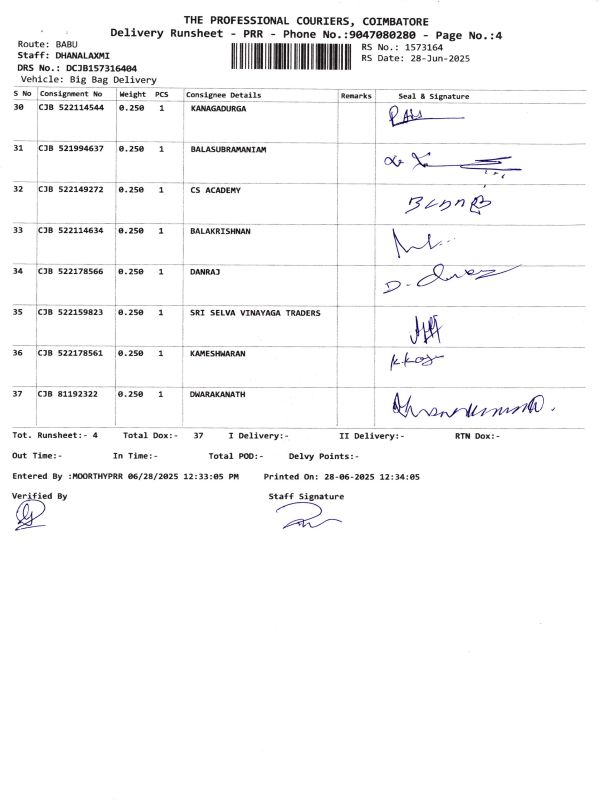 THE PROFESSIONAL COURIERS, COIMBATORE
Delivery Runsheet - PRR - Phone No.:9047080280 - Page No.:4
Route: BABU
RS No.: 1573164
Staff: DHANALAXMI
RS Date: 28-Jun-2025
DRS No.: DCJB157316404
Vehicle: Big Bag Delivery
S No Consignment No Weight PCS Consignee Details Remarks Seal & Signature
30 CJB 522114544 0.250 1 KANAGADURGA
31 CJB 521994637 0.250 1 BALASUBRAMANIAM
32 CJB 522149272 0.250 1 CS ACADEMY
33 CJB 522114634 0.250 1 BALAKRISHNAN
34 CJB 522178566 0.250 1 DANRAJ
35 CJB 522159823 0.250 1 SRI SELVA VINAYAGA TRADERS
36 CJB 522178561 0.250 1 KAMESHWARAN
37 CJB 81192322 0.250 1 DWARAKANATH
Tot. Runsheet:- 4 Total Dox:- 37 I Delivery:- II Delivery:- RTN Dox:-
Out Time:- In Time:- Total POD:- Delvy Points:-
Entered By :MOORTHYPRR 06/28/2025 12:33:05 PM Printed On: 28-06-2025 12:34:05
Verified By Staff Signature